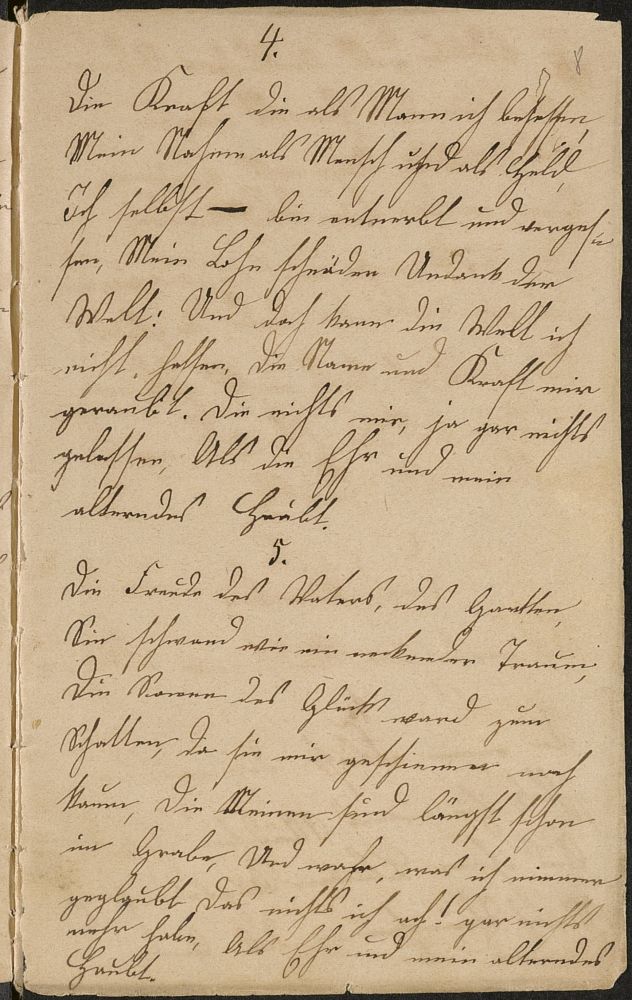 4.
8
Die Kraft die als Mann ich besessen,
Mein Nahme als Mensch und als Held,
Ich selbst — bin entnerbt und verges=
sen, Mein Lohn schnöder Undank der
Welt: Und doch kann die Welt ich
nicht hassen, Die Name und Kraft mir
geraubt. Die nichts mir, ja gar nichts
gelassen, Als die Ehr und mein
alterndes Haubt.
5.
Die Freude des Vaters, des Gatten,
Sie schwand wie ein neckender Traum,
Die Sonne des Glücks ward zum
Schatten, da sie mir geschienen noch
kaum, Die Meinen sind längst schon
im Grabe, Und wahr, was ich nimmer
geglaubt Das nichts ich ach! gar nichts
mehr habe, Als Ehr und mein alterndes
Haubt.